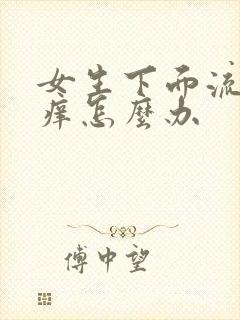 女生下而流
痒怎麽办
傅中望